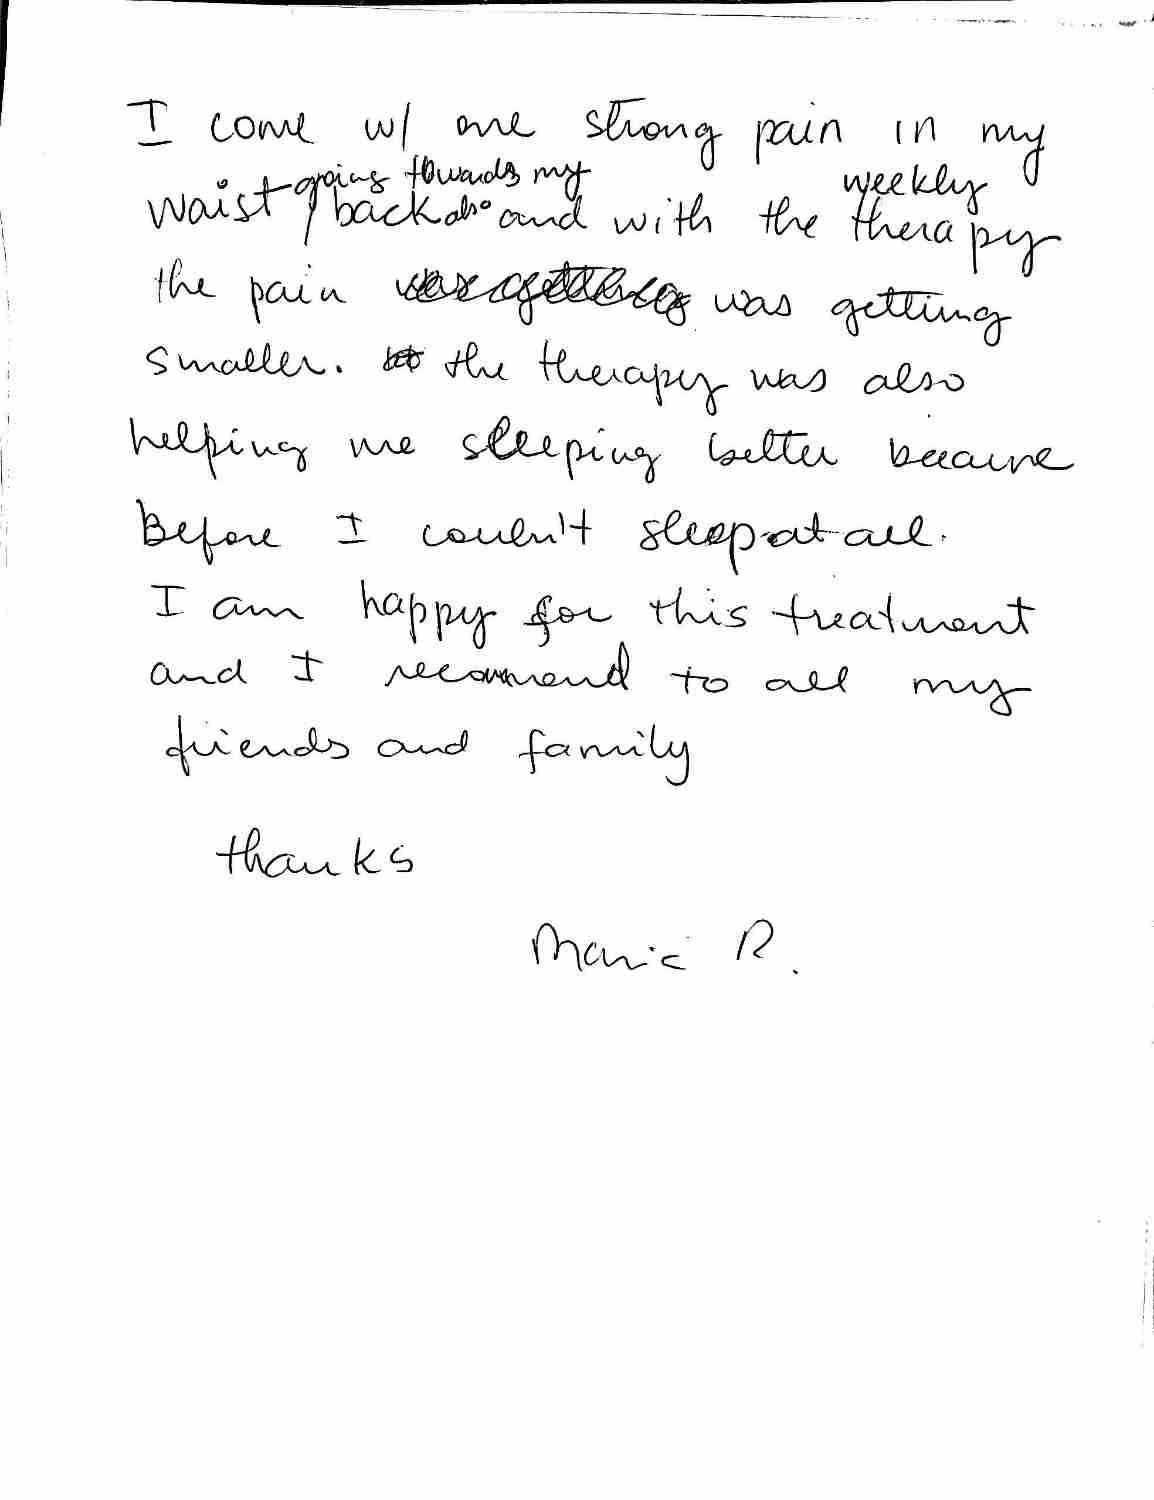 I come w/ one strong pain in my
going towards my weekly
waist / back also and with the therapy
the pain was getting
smaller. the therapy was also
helping me sleeping better because
Before I couldn't sleep at all.
I am happy for this treatment
and I recommend to all my
friends and family
thanks
Maria R.